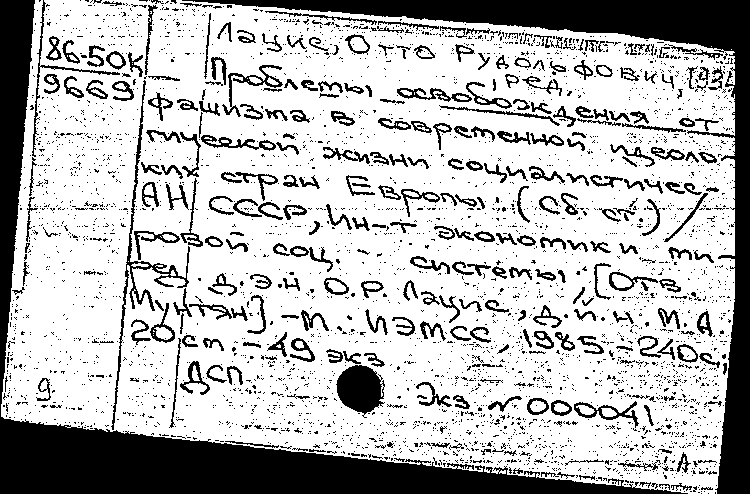 86-50К
9669
Лацис, Отто Рудольфович, 1934
, ред.
Проблемы освобождения от
фашизма в современной идеоло-
гической жизни социалистичес-
ких стран Европы: (Сб. ст.) /
АН СССР, Ин-т экономики ми-
ровой соц. системы; [Отв.
ред. д.э.н. О.Р. Лацис, д.и.н. М.А.
Мунтян]. -М.: ИЭМСС, 1985. -240с;
20 см. -49 экз.
ДСП.
Экз. N 000041
9